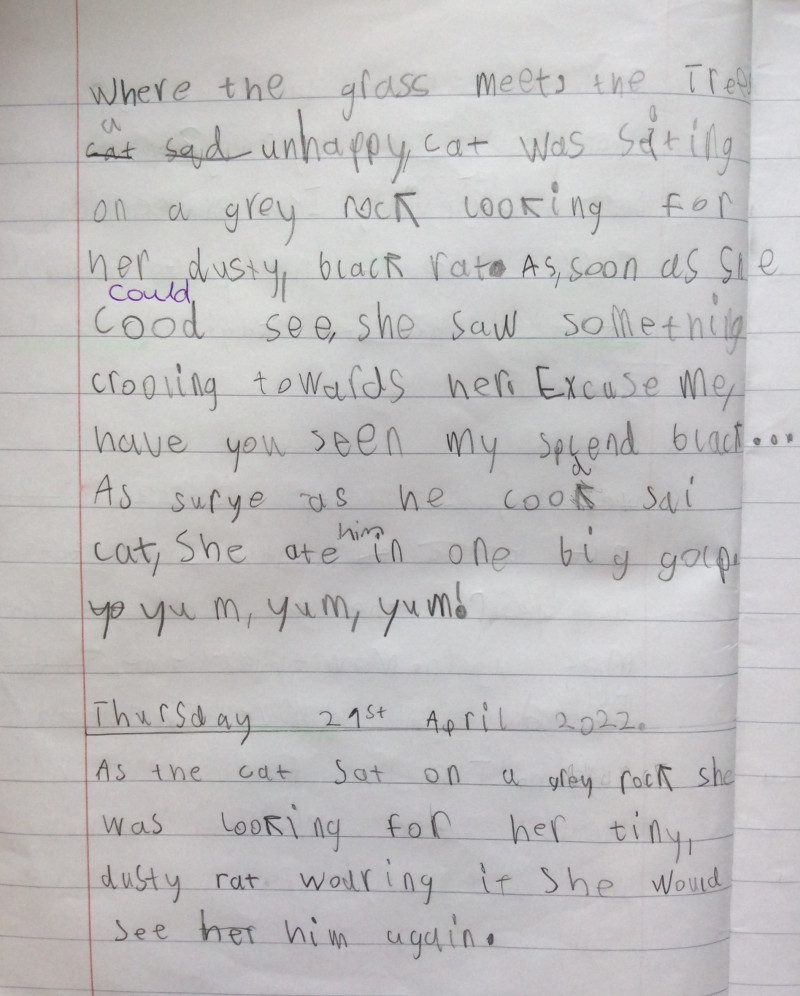 Where the grass meets the Tree
a
cat sad unhappy, cat was sitting
on a grey rock looking for
her dusty, black rat. As, soon as she
could
cood see, she saw something
crooling towards her. Excuse me,
have you seen my splend black...
As surye as he cood sai
cat, She ate him in one big golp.
yo yum, yum, yum!
Thursday 21st April 2022.
As the cat Sat on a grey rock she
was looking for her tiny,
dusty rat wodring if She Would
see her him again.